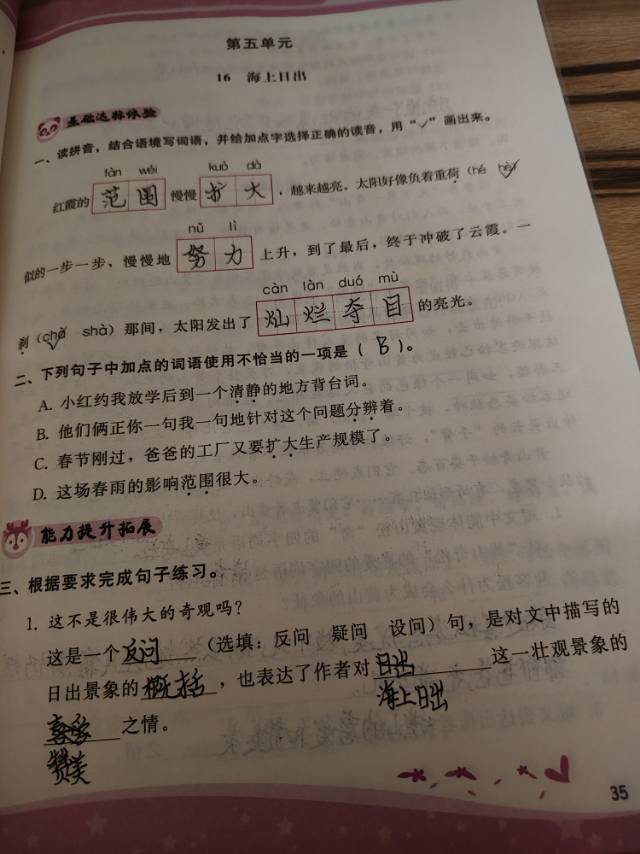 第五单元
16 海上日出
基础达标体验
一、读拼音，结合语境写词语，并给加点字选择正确的读音，用“√”画出来。
fàn wéi kuò dà
红霞的 范围 慢慢 扩大 ，越来越亮。太阳好像负着重荷（hé hè）
nǔ lì
似的一步一步，慢慢地 努力 上升，到了最后，终于冲破了云霞。一
càn làn duó mù
刹（chà shà）那间，太阳发出了 灿烂夺目 的亮光。
二、下列句子中加点的词语使用不恰当的一项是（ B ）。
A. 小红约我放学后到一个清静的地方背台词。
B. 他们俩正你一句我一句地针对这个问题分辨着。
C. 春节刚过，爸爸的工厂又要扩大生产规模了。
D. 这场春雨的影响范围很大。
能力提升拓展
三、根据要求完成句子练习。
1. 这不是很伟大的奇观吗？
这是一个 反问 （选填：反问 疑问 设问）句，是对文中描写的
日出景象的 概括 ，也表达了作者对 日出 这一壮观景象的
海上日出
之情。
赞美
35